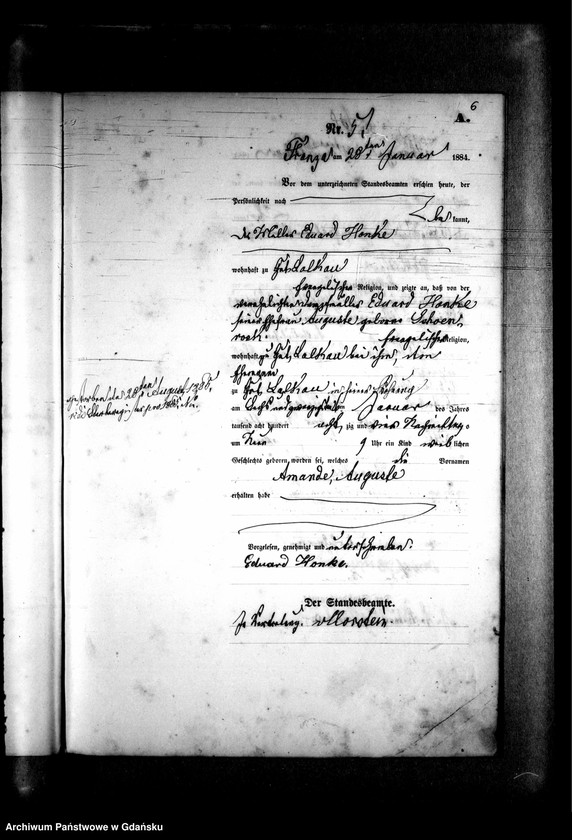 6
A.
Nr. 5.
am 28ten Januar 1884.
Vor dem unterzeichneten Standesbeamten erschien heute, der
Persönlichkeit nach
bekannt,
der Eduard Honke
wohnhaft zu Gut Lalkau
evangelischer Religion, und zeigte an, daß von der
Eduard Honke
Ehefrau Auguste geborne Schoen,
evangelischer Religion,
wohnhaft zu Gut Lalkau bei ihm, dem
Ehemann
zu Gut Lalkau in seiner Wohnung
am sechs und zwanzigsten Januar des Jahres
tausend acht hundert achtzig und vier Nachmittags
um neun 9 Uhr ein Kind weiblichen
Geschlechts geboren worden sei, welches die Vornamen
Amande, Auguste
erhalten habe
Vorgelesen, genehmigt und unterschrieben.
Eduard Honke.
Der Standesbeamte.
In Vertretung.
gestorben den 28ten August
Archiwum Państwowe w Gdańsku